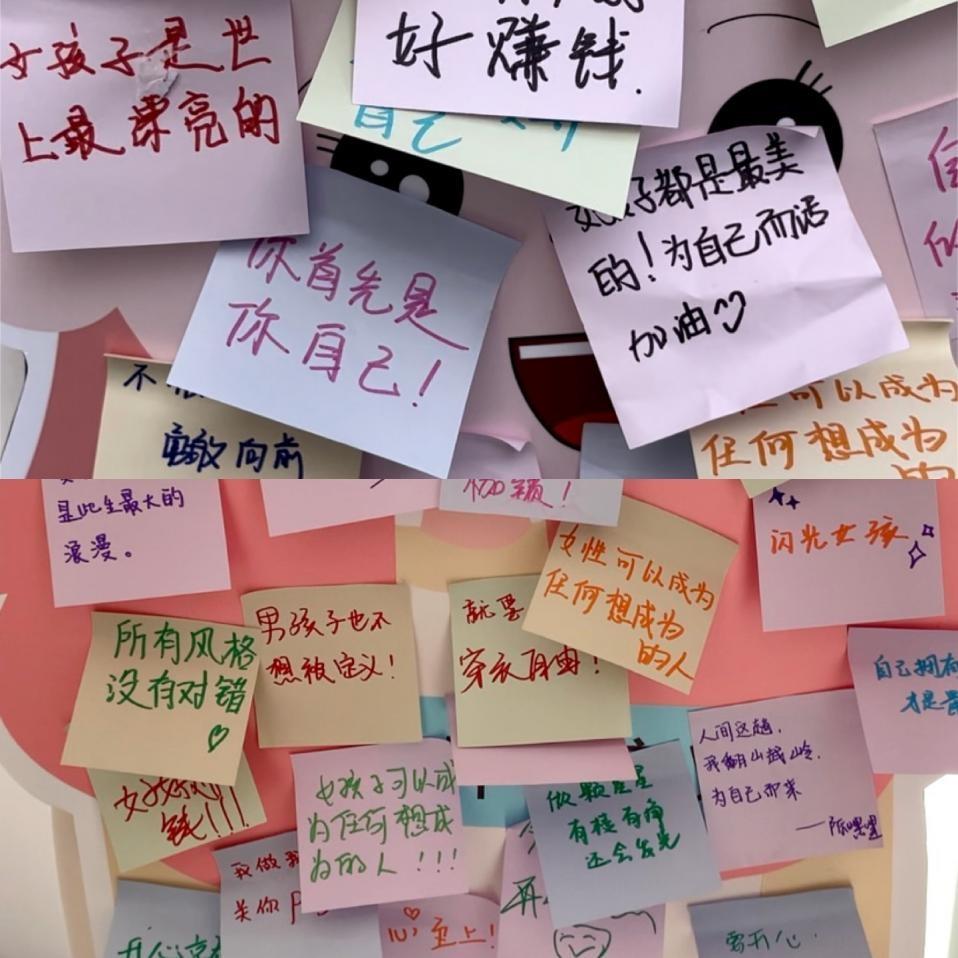 女孩子是世
上最漂亮的
好赚钱.
自己
你首先是
你自己!
女孩子都是最美
的!为自己而活
加油
不
勇敢向前
可以成为
任何想成为
的
是此生最大的
浪漫。
枷锁!
女性可以成为
任何想成为
的人
闪光女孩
所有风格
没有对错
男孩子也不
想被定义!
就要
穿衣自由!
自己拥有
才是
人间这趟,
我翻山越岭,
为自己而来
钱!!!
女孩子可以成
为任何想成
为的人!!!
做颗星星
有棱有角
还会发光
我做我
关你
心至上!
开心
要开心.